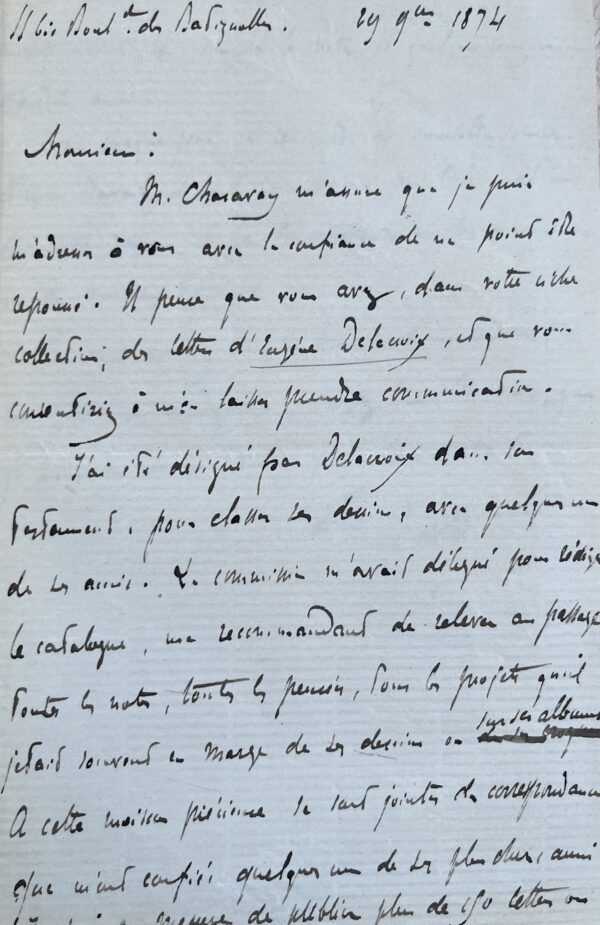 11 bis Boul^d des Batignolles. 29 9^bre 1874
Monsieur :
M. Charavay m'assure que je puis
m'adresser à vous avec la confiance de ne point être
repoussé. Il pense que vous avez, dans votre riche
collection, des lettres d'Eugène Delacroix, et que vous
consentiriez à m'en laisser prendre communication.
J'ai été désigné par Delacroix dans son
testament, pour classer ses dessins, avec quelques uns
de ses amis. La commission m'avait délégué pour rédiger
le catalogue, me recommandant de relever au passage
toutes les notes, toutes les pensées, tous les projets qu'il
jetait souvent en marge de ses dessins ou sur ses albums
A cette moisson précieuse se sont jointes des correspondances
que m'ont confiées quelques uns de ses plus chers amis
mesure de publier plus de 150 lettres ou